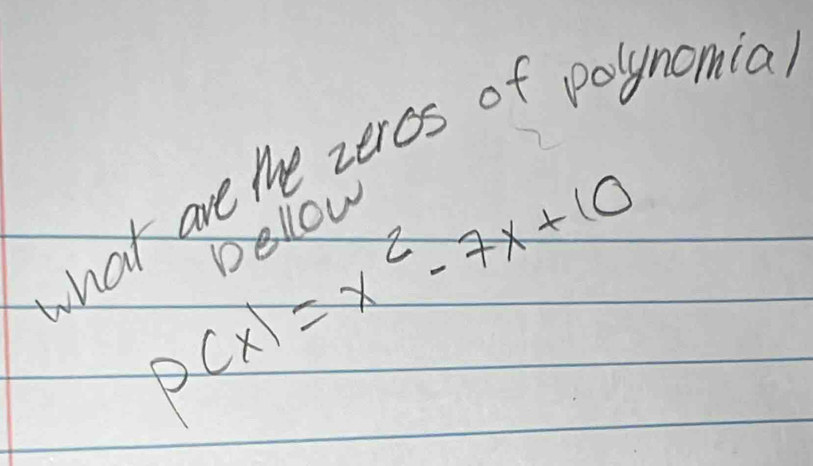 what are the zeros of polynomial
bellow
p(x) = x² - 7x + 10